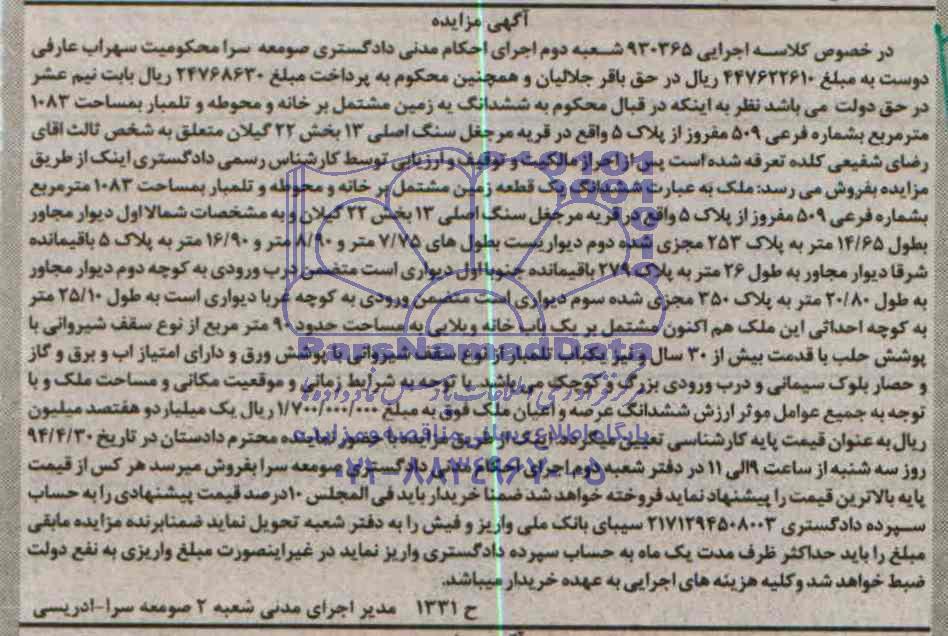 آگهی مزایده
در خصوص کلاسه اجرایی ۹۳۰۳۶۵ شعبه دوم اجرای احکام مدنی دادگستری صومعه سرا محکومیت سهراب عارفی
دوست به مبلغ ۴۴۷۶۲۲۶۱۰ ریال در حق باقر جلالیان و همچنین محکوم به پرداخت مبلغ ۲۴۷۶۸۶۳۰ ریال بابت نیم عشر
در حق دولت می باشد نظر به اینکه در قبال محکوم به ششدانگ یه زمین مشتمل بر خانه و محوطه و تلمبار بمساحت ۱۰۸۳
مترمربع بشماره فرعی ۵۰۹ مفروز از پلاک ۵ واقع در قریه مرجغل سنگ اصلی ۱۳ بخش ۲۲ گیلان متعلق به شخص ثالث اقای
رضای شفیعی کلده تعرفه شده است پس از احراز مالکیت و توقیف و ارزیابی توسط کارشناس رسمی دادگستری اینک از طریق
مزایده بفروش می رسد: ملک به عبارت ششدانگ یک قطعه زمین مشتمل بر خانه و محوطه و تلمبار بمساحت ۱۰۸۳ مترمربع
بشماره فرعی ۵۰۹ مفروز از پلاک ۵ واقع در قریه مرجغل سنگ اصلی ۱۳ بخش ۲۲ گیلان و به مشخصات شمالا اول دیوار مجاور
بطول ۱۴/۶۵ متر به پلاک ۲۵۳ مجزی شده دوم دیواریست بطول های ۷/۷۵ متر و ۸/۹۰ متر و ۱۶/۹۰ متر به پلاک ۵ باقیمانده
شرقا دیوار مجاور به طول ۲۶ متر به پلاک ۲۷۹ باقیمانده جنوبا اول دیواری است متضمن درب ورودی به کوچه دوم دیوار مجاور
به طول ۲۰/۸۰ متر به پلاک ۳۵۰ مجزی شده سوم دیواری است متضمن ورودی به کوچه غربا دیواری است به طول ۲۵/۱۰ متر
به کوچه احداثی این ملک هم اکنون مشتمل بر یک باب خانه ویلایی به مساحت حدود ۹۰ متر مربع از نوع سقف شیروانی با
پوشش حلب با قدمت بیش از ۳۰ سال و نیز یکباب تلمبار از نوع سقف شیروانی با پوشش ورق و دارای امتیاز اب و برق و گاز
و حصار بلوک سیمانی و درب ورودی بزرگ و کوچک می باشد. با توجه به شرایط زمانی و موقعیت مکانی و مساحت ملک و با
توجه به جمیع عوامل موثر ارزش ششدانگ عرصه و اعیان ملک فوق به مبلغ ۱/۷۰۰/۰۰۰/۰۰۰ ریال یک میلیارد و هفتصد میلیون
ریال به عنوان قیمت پایه کارشناسی تعیین میگردد. اینک از طریق مزایده با حضور نماینده محترم دادستان در تاریخ ۹۴/۴/۳۰
روز سه شنبه از ساعت ۹ الی ۱۱ در دفتر شعبه دوم اجرای احکام مدنی دادگستری صومعه سرا بفروش میرسد هر کس از قیمت
پایه بالاترین قیمت را پیشنهاد نماید فروخته خواهد شد ضمنا خریدار باید فی المجلس ۱۰ درصد قیمت پیشنهادی را به حساب
سپرده دادگستری ۲۱۷۱۲۹۴۵۰۸۰۰۳ سیبای بانک ملی واریز و فیش را به دفتر شعبه تحویل نماید ضمنا برنده مزایده مابقی
مبلغ را باید حداکثر ظرف مدت یک ماه به حساب سپرده دادگستری واریز نماید در غیراینصورت مبلغ واریزی به نفع دولت
ضبط خواهد شد وکلیه هزینه های اجرایی به عهده خریدار میباشد.
ح ۱۳۳۱ مدیر اجرای مدنی شعبه ۲ صومعه سرا-ادریسی
ParsNamadData
پایگاه اطلاع رسانی مناقصه و مزایده
۰۲۱-۸۸۳۴۹۶۷۰-۵